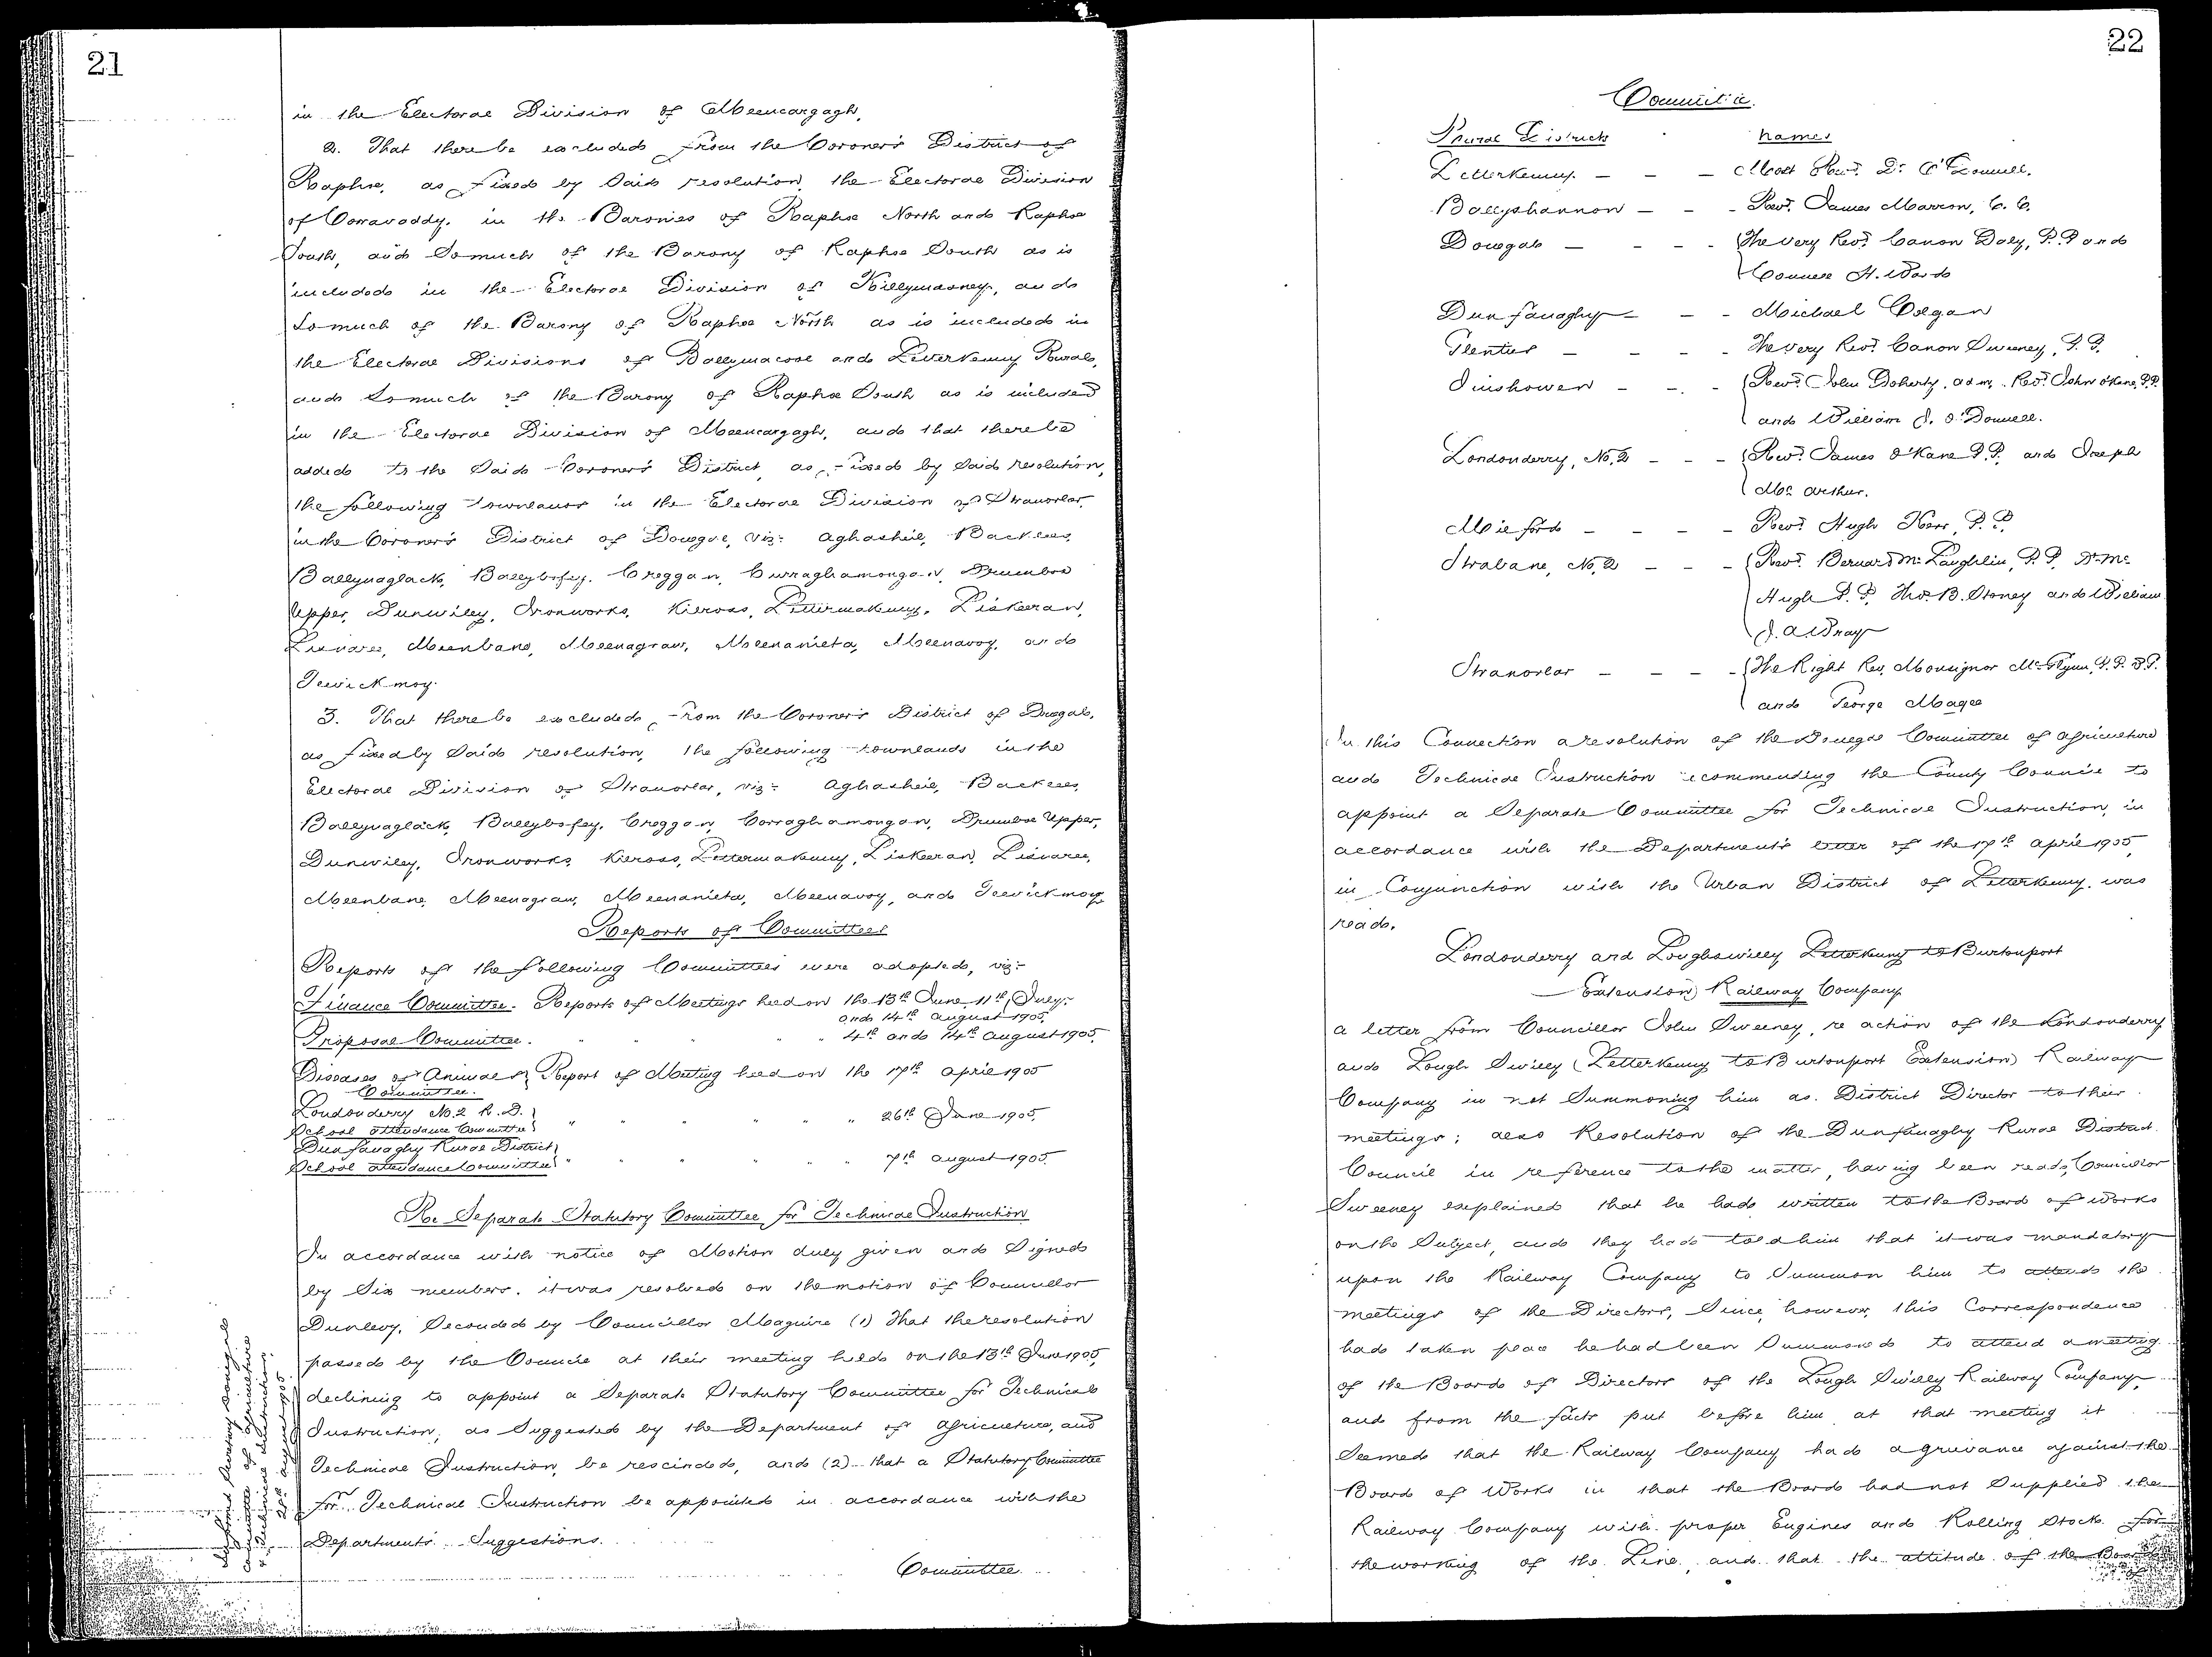 21
in the Electoral Division of Meencargagh.
2. That there be excluded from the Coroner's District of
Raphoe, as fixed by said resolution, the Electoral Division
of Corravaddy, in the Baronies of Raphoe North and Raphoe
South, and so much of the Barony of Raphoe South as is
included in the Electoral Division of Killymasney, and
so much of the Barony of Raphoe North as is included in
the Electoral Divisions of Ballymacool and Letterkenny Rural,
and so much of the Barony of Raphoe South as is included
in the Electoral Division of Meencargagh, and that there be
added to the said Coroner's District, as fixed by said resolution,
the following townlands in the Electoral Division of Stranorlar,
in the Coroner's District of Donegal, viz:- Aghasheil, Backlees,
Ballynaglack, Ballybofey, Creggan, Curraghamongan, Drumboe
Upper, Dunwiley, Ironworks, Kieross, Lettermakenny, Liskeeran,
Lisnaree, Meenbane, Meenagrau, Meenanieta, Meenavoy, and
Teevickmoy.
3. That there be excluded from the Coroner's District of Donegal,
as fixed by said resolution, the following townlands in the
Electoral Division of Stranorlar, viz:- Aghasheil, Backlees,
Ballynaglack, Ballybofey, Creggan, Corraghamongan, Drumboe Upper,
Dunwiley, Ironworks, Kieross, Lettermakenny, Liskeeran, Lisnaree,
Meenbane, Meenagrau, Meenanieta, Meenavoy, and Teevickmoy.
Reports of Committees
Reports of the following Committees were adopted, viz:-
Finance Committee. Reports of Meetings held on the 13th June, 11th July,
and 14th August 1905.
Proposal Committee. " " " " 4th and 14th August 1905.
Diseases of Animals } Report of Meeting held on the 17th April 1905
Committee.
Londonderry No. 2 R. D. }
School Attendance Committee } " " " " " " 26th June 1905.
Dunfanaghy Rural District }
School Attendance Committee } " " " " " 7th August 1905.
Re Separate Statutory Committee for Technical Instruction
In accordance with notice of Motion duly given and signed
by six members, it was resolved on the motion of Councillor
Dunlevy, seconded by Councillor Maguire (1) That the resolution
passed by the Council at their meeting held on the 13th June 1905,
declining to appoint a Separate Statutory Committee for Technical
Instruction, as suggested by the Department of Agriculture, and
Technical Instruction, be rescinded, and (2) that a Statutory Committee
for Technical Instruction be appointed in accordance with the
Department's Suggestions.
Committee
Secretary Donegal
Committee of Agriculture
& Technical Instruction,
August 1905
22
Committee.
Rural District names
Letterkenny. - - - Most Revd. Dr. O'Donnell.
Ballyshannon - - - Revd. James Marron, C. C.
Donegal - - - - { The very Revd. Canon Daly, P. P. and
{ Connell H. Ward
Dunfanaghy - - - Michael Colgan
Glenties - - - - The very Revd. Canon Sweeney, P. P.
Inishowen - - - { Revd. John Doherty, adm, Revd. John O'Kane, P.P.
{ and William J. O'Donnell.
Londonderry, No. 2 - - - { Revd. James O'Kane P.P. and Joseph
{ Mc Arthur.
Milford - - - - Revd. Hugh Kerr, P. P.
Strabane, No. 2 - - - { Revd. Bernard McLaughlin, P. P. Dr. Mc
{ Hugh P. P. Thos. B. Stoney and William
{ J. A. Wray
Stranorlar - - - - { The Right Rev. Monsignor McGlynn, P. P. V. F.
{ and George Magee
In this Connection a resolution of the Donegal Committee of Agriculture
and Technical Instruction recommending the County Council to
appoint a Separate Committee for Technical Instruction, in
accordance with the Department's letter of the 17th April 1905,
in Conjunction with the Urban District of Letterkenny was
read.
Londonderry and Loughswilly Letterkenny to Burtonport
Extension) Railway Company
A letter from Councillor John Sweeney, re action of the Londonderry
and Lough Swilly (Letterkenny to Burtonport Extension) Railway
Company in not Summoning him as District Director to their
meetings; also Resolution of the Dunfanaghy Rural District
Council in reference to the matter, having been read, Councillor
Sweeney explained that he had written to the Board of Works
on the Subject, and they had told him that it was mandatory
upon the Railway Company to Summon him to attend the
meetings of the Directors, Since, however, this Correspondence
had taken place he had been Summoned to attend a meeting
of the Board of Directors of the Lough Swilly Railway Company,
and from the facts put before him at that meeting it
Seemed that the Railway Company had a grievance against the
Board of Works in that the Board had not Supplied the
Railway Company with proper Engines and Rolling Stock for
the working of the Line, and that the attitude of the Board
of